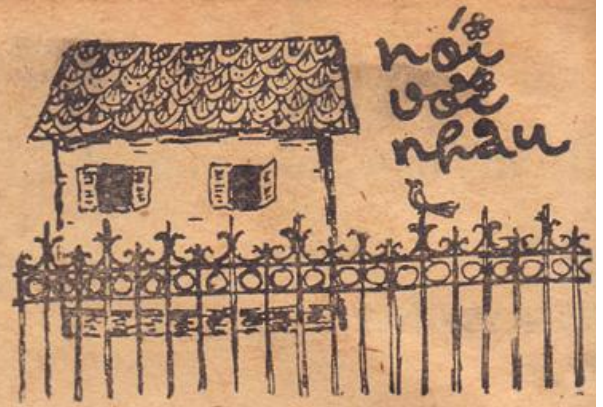 nói
với
nhau